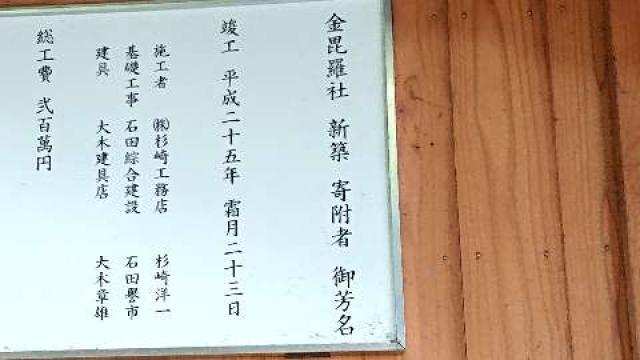 金毘羅社 新築 寄附者 御芳名
竣工 平成二十五年 霜月二十三日
施工者 ㈱杉崎工務店 杉崎洋一
基礎工事 石田綜合建設 石田誉市
建具 大木建具店 大木章雄
総工費 弐百萬円